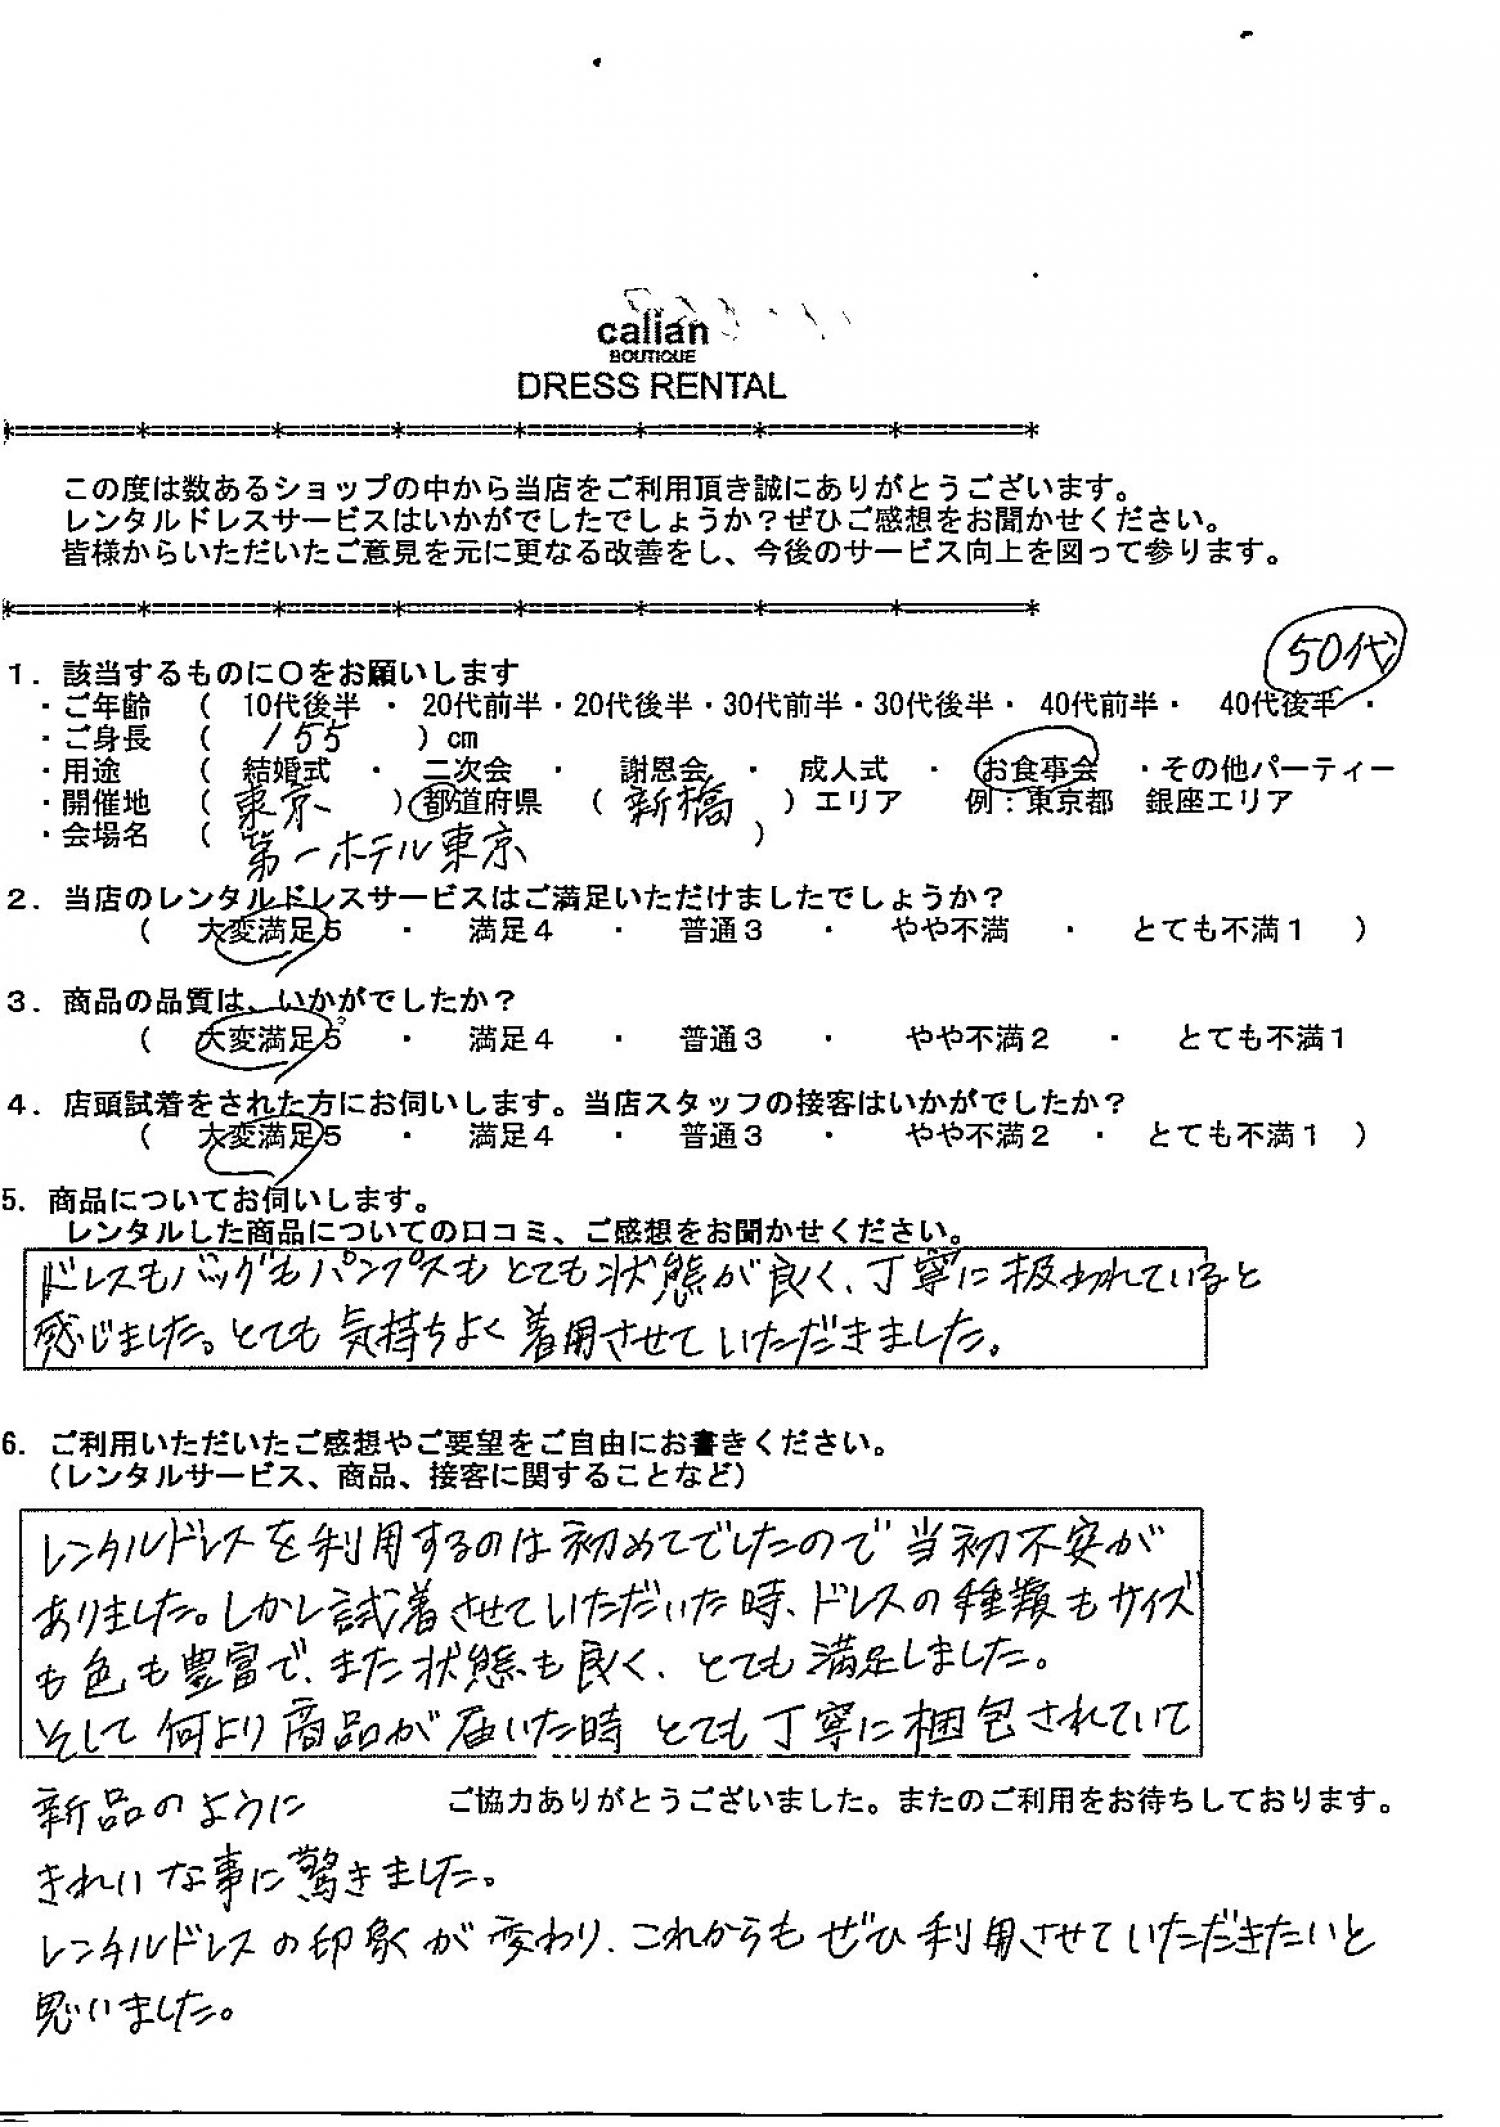 calian
BOUTIQUE
DRESS RENTAL
*========*========*=======*=======*=======*=======*========*========*
この度は数あるショップの中から当店をご利用頂き誠にありがとうございます。
レンタルドレスサービスはいかがでしたでしょうか？ぜひご感想をお聞かせください。
皆様からいただいたご意見を元に更なる改善をし、今後のサービス向上を図って参ります。
*========*========*=======*=======*=======*=======*========*========*
50代
１．該当するものに〇をお願いします
・ご年齢 （ 10代後半 ・ 20代前半・20代後半・30代前半・30代後半・ 40代前半・ 40代後半 ・
・ご身長 （ 155 ）cm
・用途 （ 結婚式 ・ 二次会 ・ 謝恩会 ・ 成人式 ・ お食事会 ・その他パーティー
・開催地 （ 東京 ）都道府県 （ 新橋 ）エリア 例：東京都 銀座エリア
・会場名 （ 第一ホテル東京 ）
２．当店のレンタルドレスサービスはご満足いただけましたでしょうか？
（ 大変満足５ ・ 満足４ ・ 普通３ ・ やや不満 ・ とても不満１ ）
３．商品の品質は、いかがでしたか？
（ 大変満足５ ・ 満足４ ・ 普通３ ・ やや不満２ ・ とても不満１
４．店頭試着をされた方にお伺いします。当店スタッフの接客はいかがでしたか？
（ 大変満足５ ・ 満足４ ・ 普通３ ・ やや不満２ ・ とても不満１ ）
5. 商品についてお伺いします。
レンタルした商品についての口コミ、ご感想をお聞かせください。
ドレスもバッグもパンプスもとても状態が良く、丁寧に扱われていると
感じました。とても気持ちよく着用させていただきました。
6. ご利用いただいたご感想やご要望をご自由にお書きください。
（レンタルサービス、商品、接客に関することなど）
レンタルドレスを利用するのは初めてでしたので当初不安が
ありました。しかし試着させていただいた時、ドレスの種類もサイズ
も色も豊富で、また状態も良く、とても満足しました。
そして何より商品が届いた時とても丁寧に梱包されていて
新品のように ご協力ありがとうございました。またのご利用をお待ちしております。
きれいな事に驚きました。
レンタルドレスの印象が変わり、これからもぜひ利用させていただきたいと
思いました。